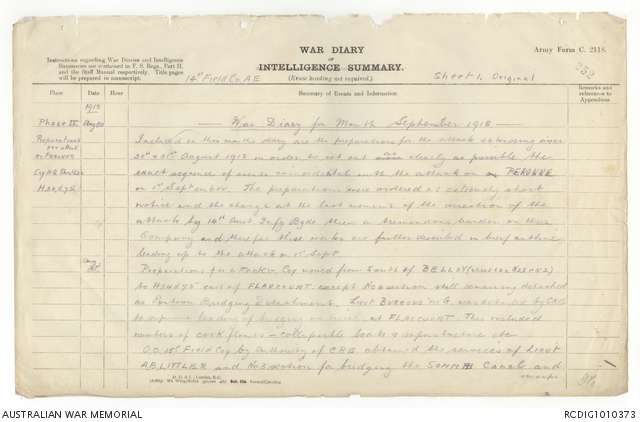 Instructions regarding War Diaries and Intelligence
Summaries are contained in F. S. Regs., Part II.
and the Staff Manual respectively. Title pages
will be prepared in manuscript.
WAR DIARY
or
INTELLIGENCE SUMMARY.
(Erase heading not required.)
14th Field Co A.E
Army Form C. 2118.
Sheet 1. Original
252
Place
Date
Hour
Summary of Events and Information
Remarks and
references to
Appendices
1918
Phase IV.
Aug 30
Preparations
for attack
on PERONNE
Coy HQ
Hdqrs
War Diary for Month September 1918
Included in this months diary are the preparations for the attack extending over
30th & 31st August 1918 in order to set out clearly as possible the
exact sequence of events coincidental with the attack on PERONNE
on 1st September. The preparations were ordered at extremely short
notice and the change at the last moment of the direction of the
attack by 14th Aust Infy Bgde threw a tremendous burden on this
Company and therefore these works are further described in brief outline
leading up to the attack on 1st Sept.
Aug
31st
Preparations for attack. Coy moved from South of BELLOY
to Hdqrs east of FLAUCOURT except No section still remaining detached
as Pontoon Bridging Detachment. Lieut BURROWS M.G. was detailed by CRE
to at FLAUCOURT. This included
numbers of cork floats - collapsible boats & superstructure etc
O.C. 15th Field Coy by Authority of CRE obtained the services of Lieut
A.E. LITTLER and No 3 section for bridging the SOMME Canal and
swamps
AUSTRALIAN WAR MEMORIAL
RCDIG1010373